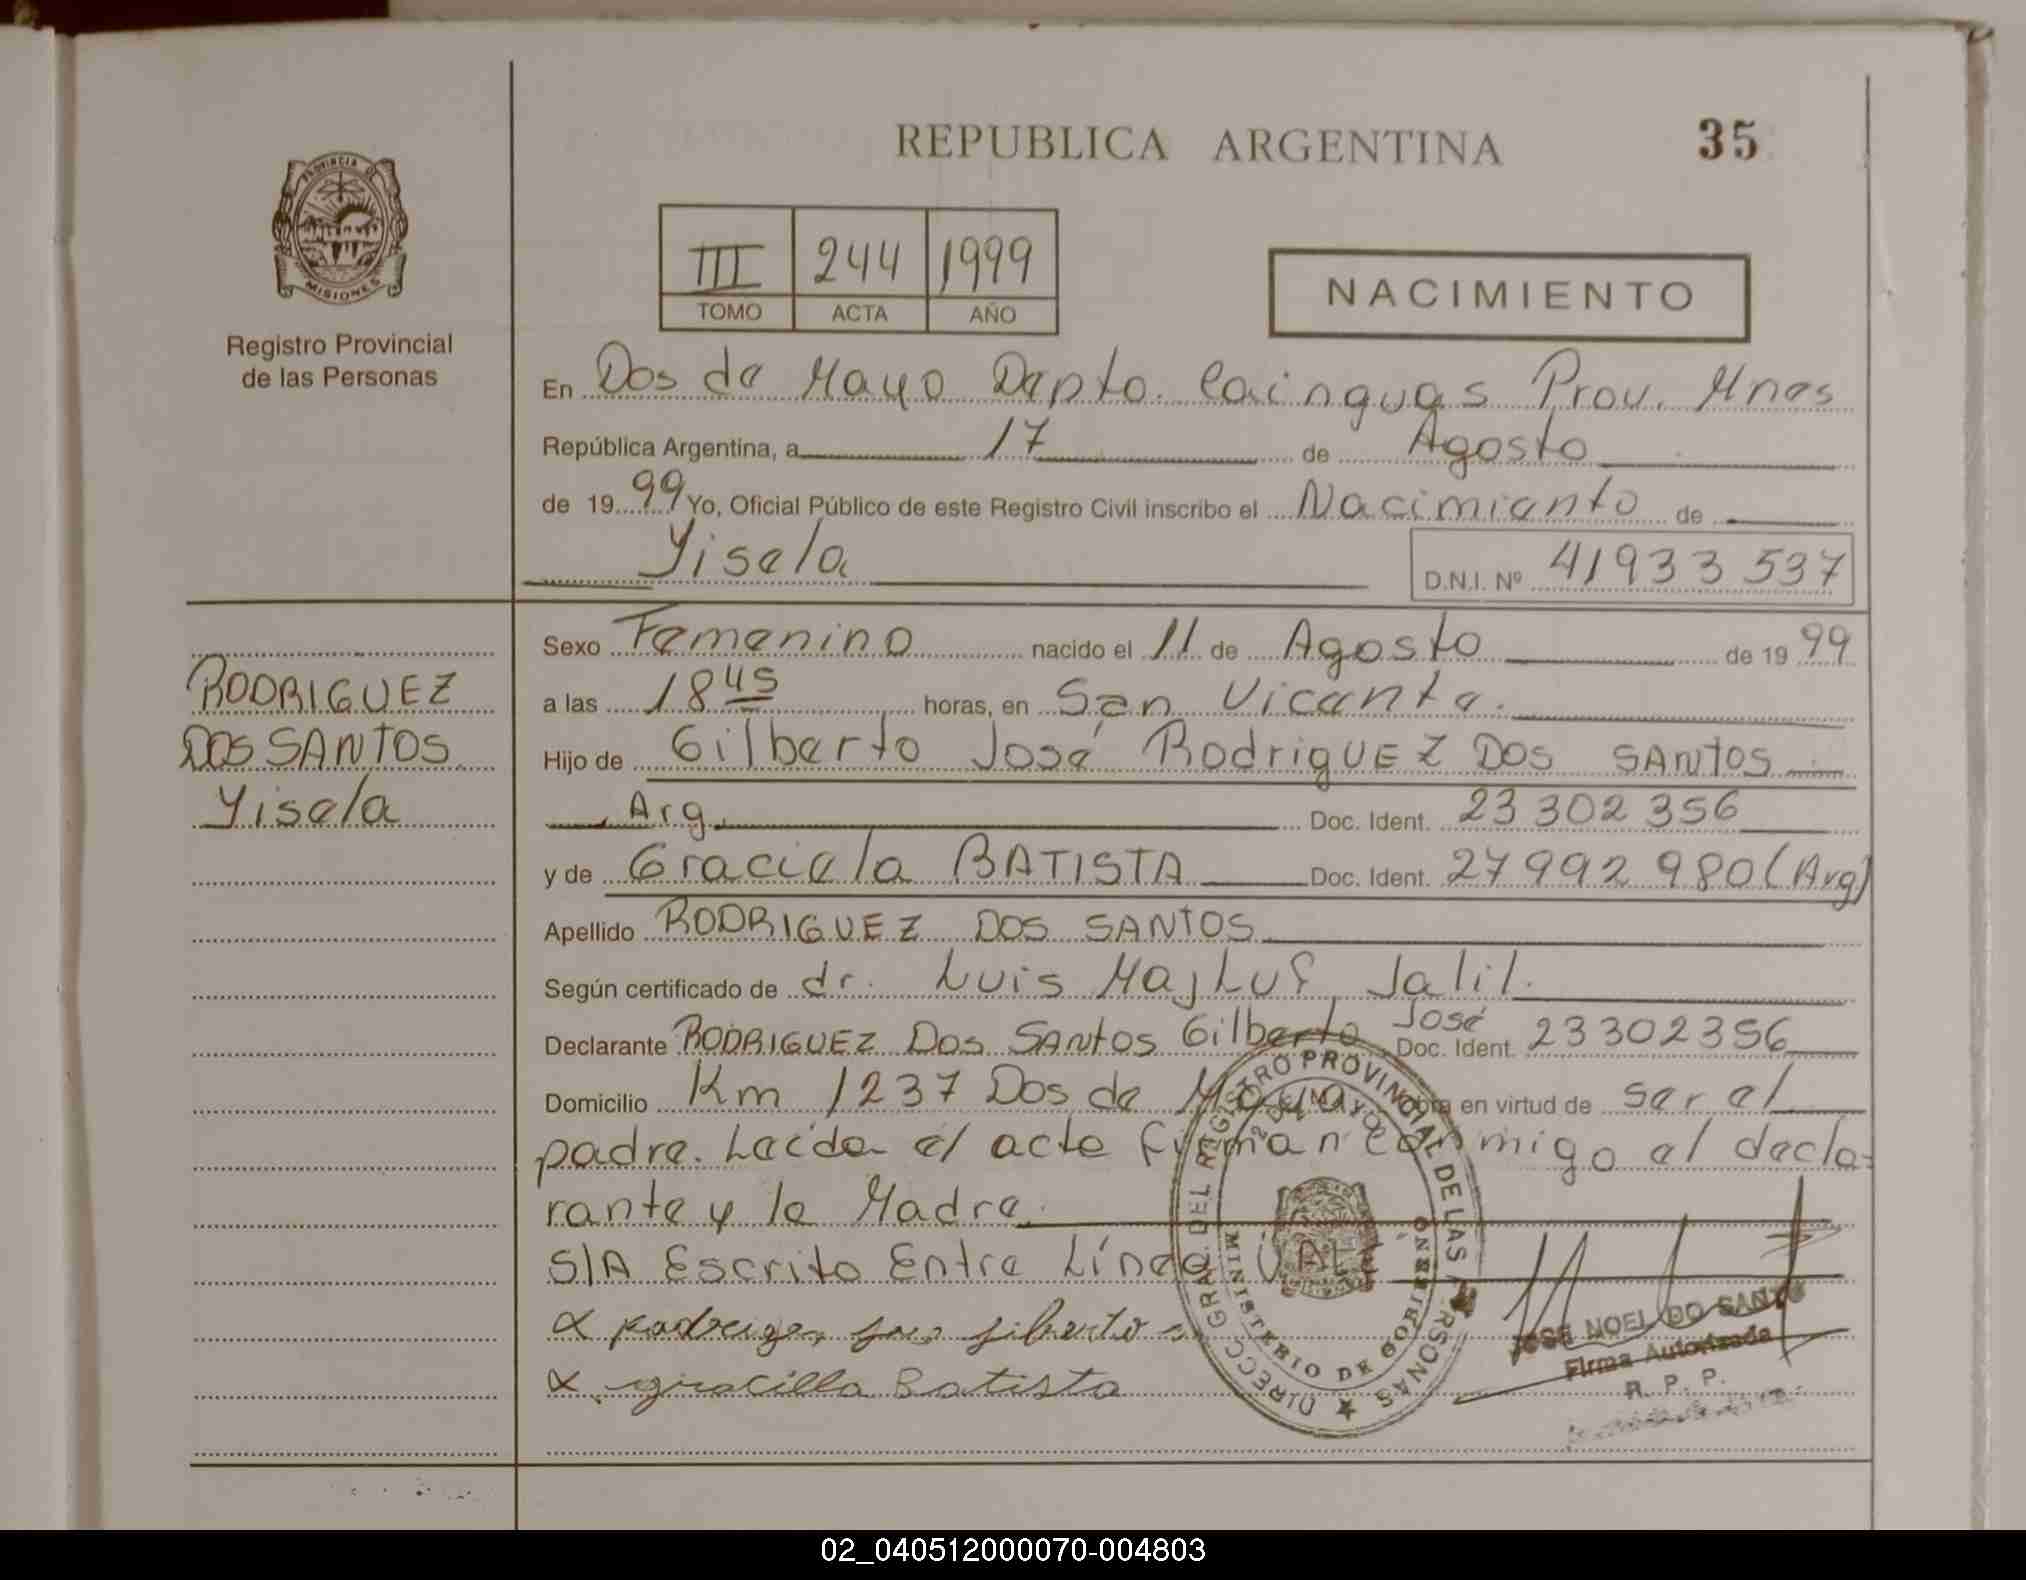 REPUBLICA ARGENTINA
35
PROVINCIA DE
MISIONES
Registro Provincial
de las Personas
III 244 1999
TOMO ACTA AÑO
NACIMIENTO
En Dos de Mayo Depto. Cainguas Prov. Mnes
República Argentina, a 17 de Agosto
de 1999 Yo, Oficial Público de este Registro Civil inscribo el Nacimiento de
Yisela
D.N.I. Nº 41933 537
RODRIGUEZ
DOS SANTOS
Yisela
Sexo Femenino nacido el 11 de Agosto de 1999
a las 18 45 horas, en San Vicente.
Hijo de Gilberto José RodrigUEZ DOS SANTOS
Arg. Doc. Ident. 23 302 356
y de Graciela BATISTA Doc. Ident. 27 992 980 (Arg)
Apellido RODRIGUEZ DOS SANTOS
Según certificado de dr. Luis MajLuf Jalil.
Declarante RODRIGUEZ Dos SANtos Gilberto José Doc. Ident. 23302356
Domicilio Km 1237 Dos de Mayo Obra en virtud de ser el
padre. Leída el acta firman conmigo el decla-
rante y la Madre.
S/A Escrito Entre Línea VALE
gilberto
graciella Batista
DIRECC. GRAL. DEL REGISTRO PROVINCIAL DE LAS PERSONAS
2 DE MAYO
MINISTERIO DE GOBIERNO
JOSE NOEL DO SANTOS
Firma Autorizada
R. P. P.
02_040512000070-004803